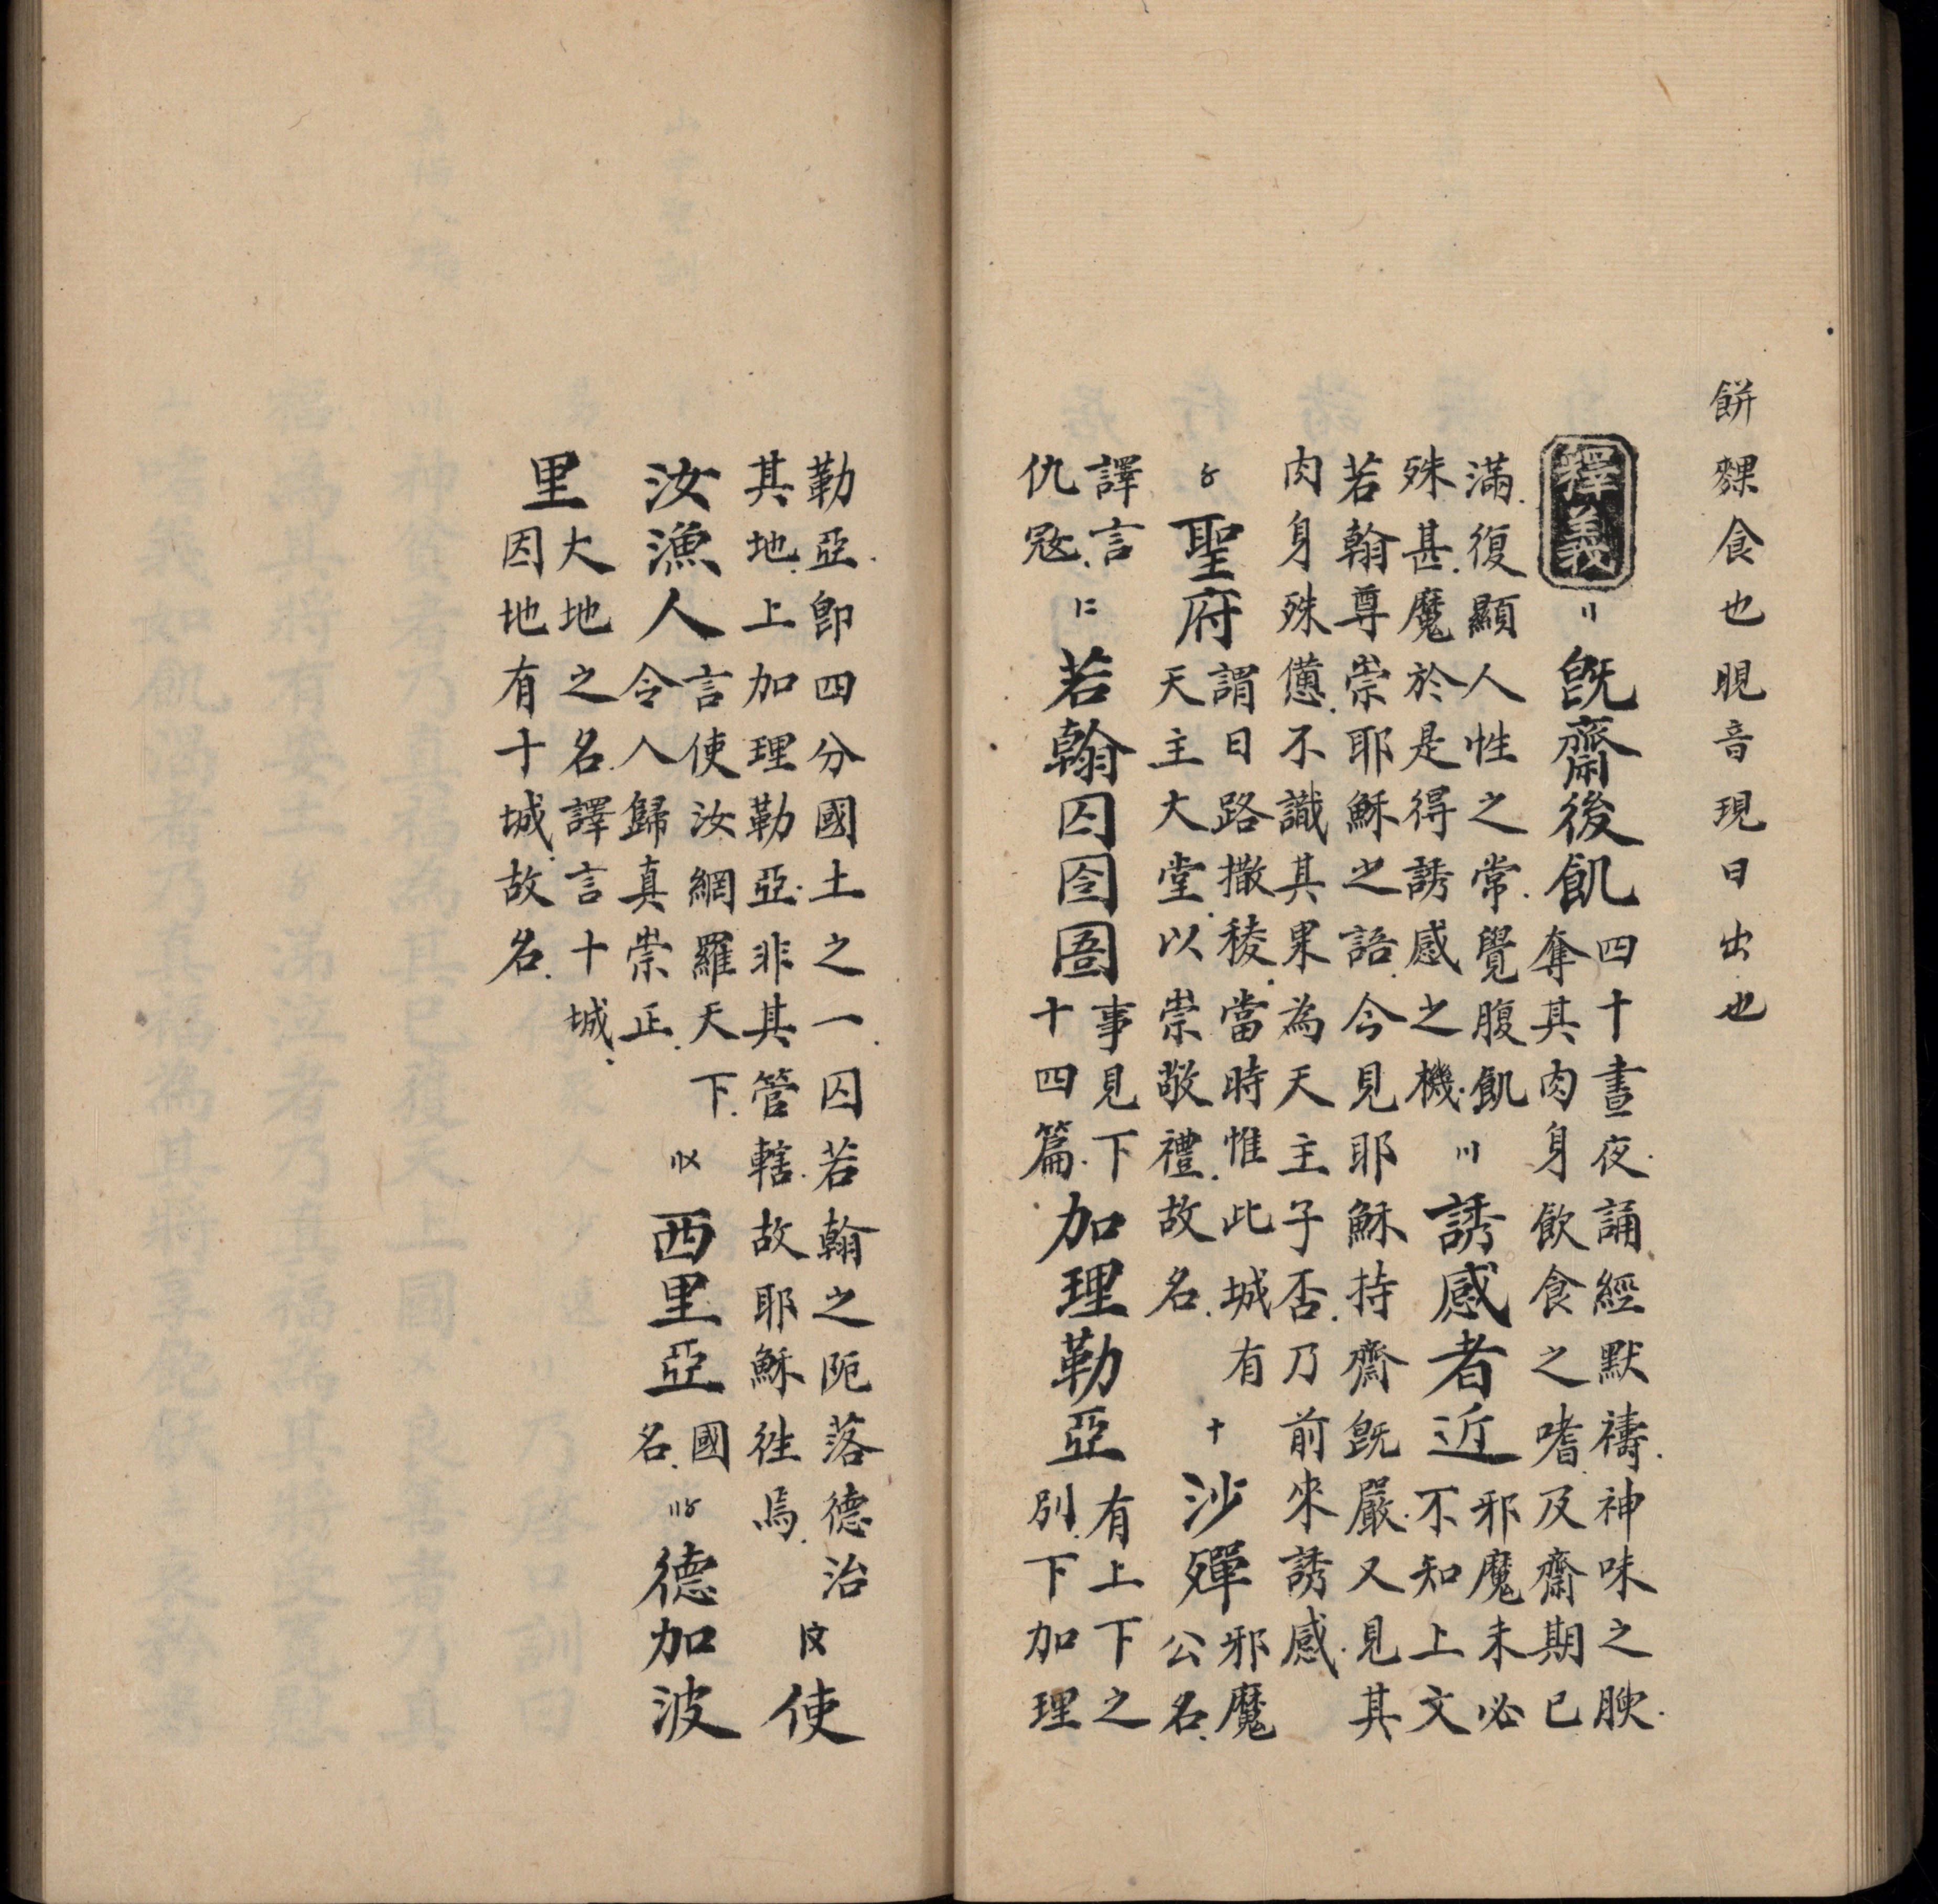 餅䴹食也晛音現日出也
釋義 〢 既齋後飢 四十晝夜誦經默禱神味之腴
奪其肉身飲食之嗜及齋期已
滿復顯人性之常覺腹飢
殊甚魔於是得誘感之機 〣 誘感者近 邪魔未必
不知上文
若翰尊崇耶穌之語今見耶穌持齋既嚴又見其
肉身殊憊不識其果為天主子否乃前來誘感
〥 聖府 謂日路撒稜當時惟此城有
天主大堂以崇敬禮故名 十 沙殫 邪魔
公名
譯言
仇寇 〡二 若翰囚囹圄 事見下
十四篇 加理勒亞 有上下之
別下加理
勒亞即四分國土之一囚若翰之阨落德治
其地上加理勒亞非其管轄故耶穌徃焉 〡〩 使
汝漁人 言使汝網羅天下
令人歸真崇正 〢〤 西里亞 國
名 〢〥 德加波
里 大地之名譯言十城
因地有十城故名